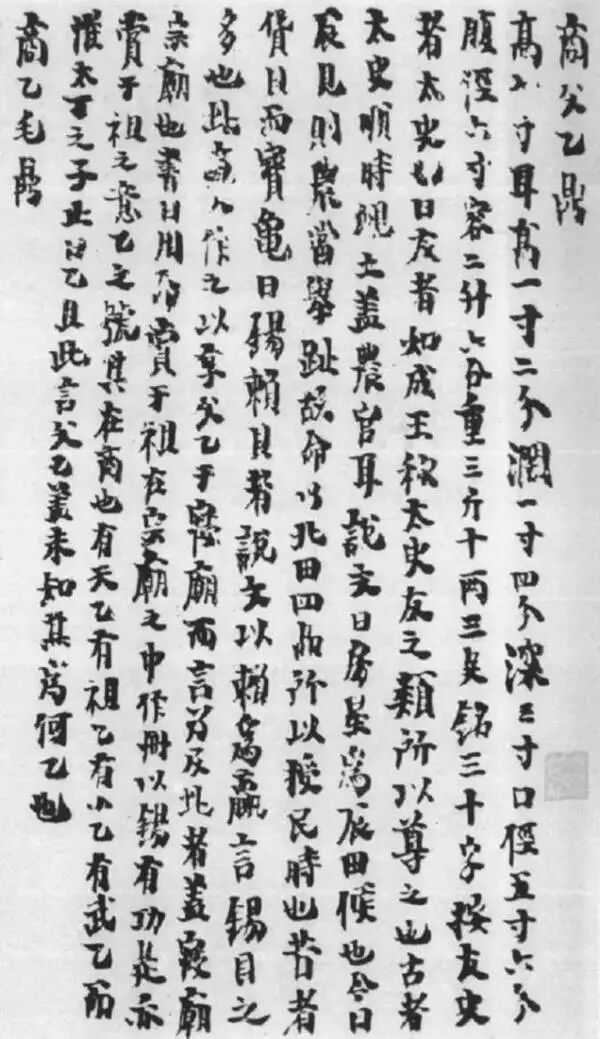 商父乙鼎
高八寸耳高一寸二分濶一寸四分深三寸口徑五寸六分
腹徑六寸容二升六合重三斤十兩三足銘三十字按友史
者太史也曰友者如成王稱太史友之類所以尊之也古者
太史順時覛土蓋農官耳說文曰房星爲辰田候也今曰
辰見則農當舉趾故命以北田四品所以授民時也昔者
貨貝而寶龜曰錫賴貝者說文以賴爲贏言錫貝之
多也此商人作之以享父乙于寢廟而言乃及此者蓋寢廟
宗廟也書曰用命賞于祖在宗廟之中作冊以錫有功是亦
賞于祖之意乙之號其在商也有天乙有祖乙有小乙有武乙而
惟太丁之子止曰乙且此言父乙蓋未知其爲何乙也
商乙毛鼎